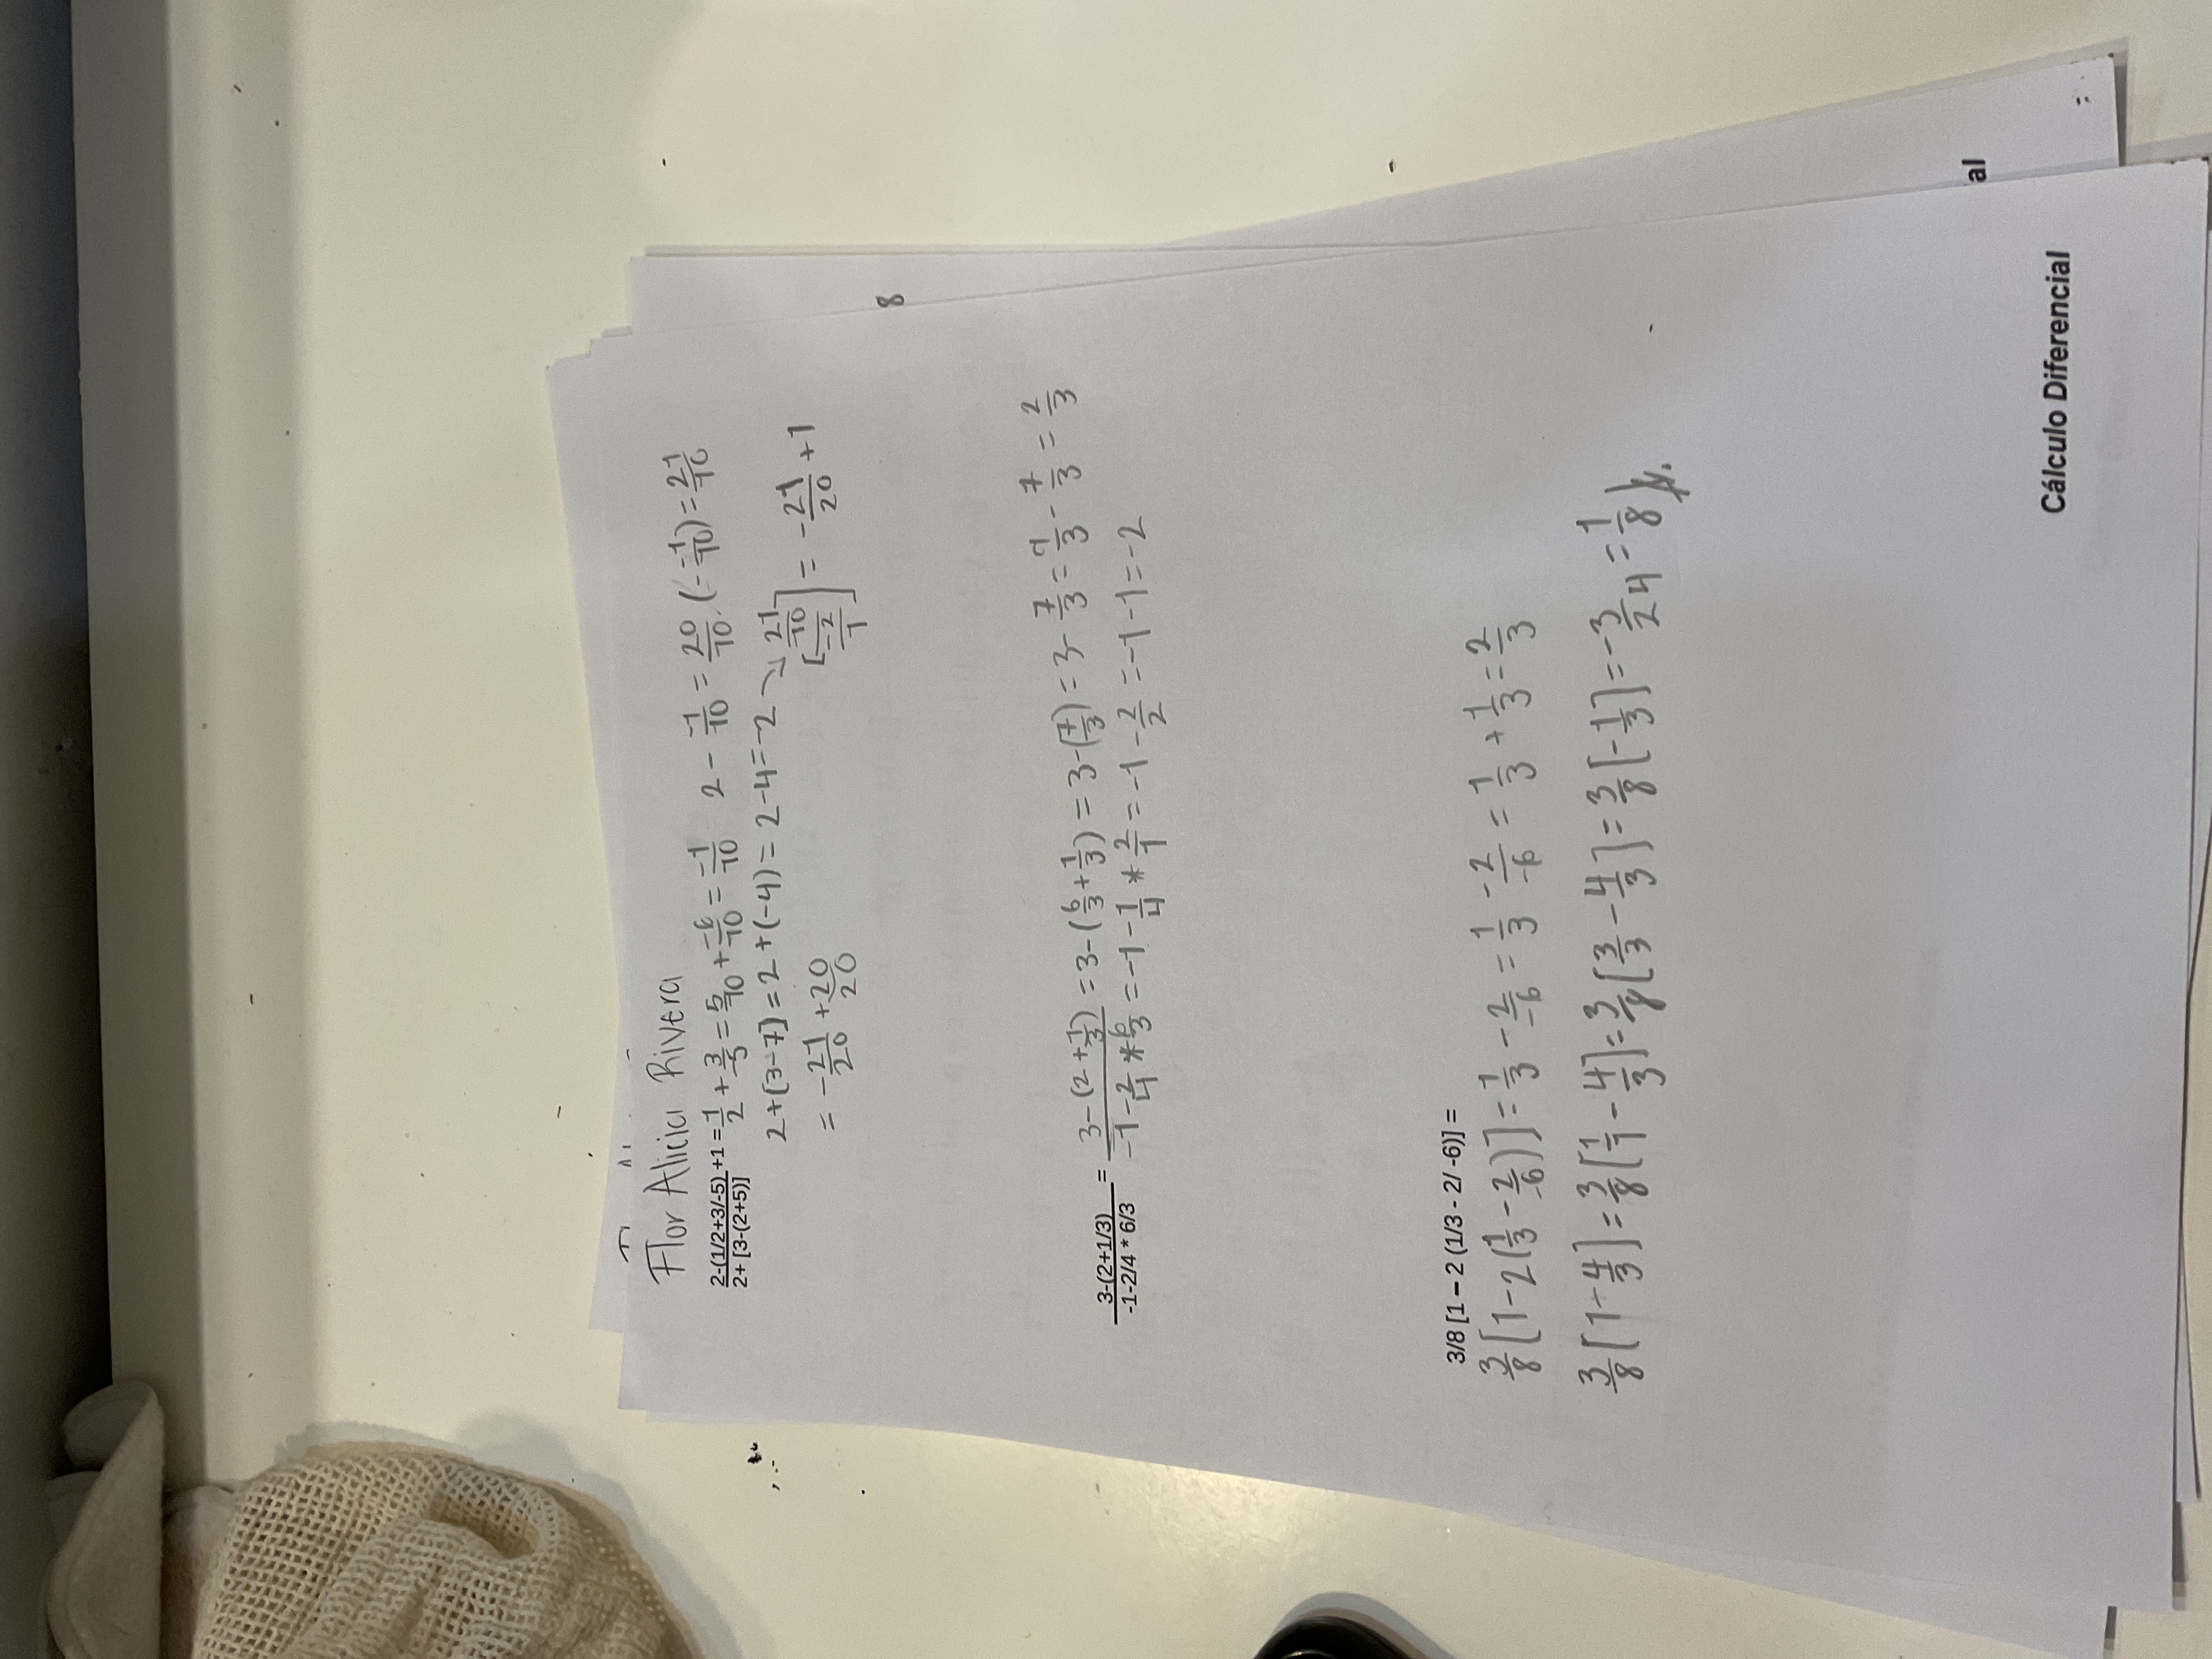 Flor Alicia Rivera
2-(1/2+3/-5) +1 = 1/2 + 3/-5 = 5/10 + -6/10 = -1/10   2 - -1/10 = 20/10 (- -1/10) = 21/10
2+ [3-(2+5)]
2+(3-7] = 2+(-4) = 2-4 = -2 → [21/10 / -2/1] = -21/20 +1
= -21/20 + 20/20
8
3-(2+1/3) = 3-(2+1/3) = 3-(6/3+1/3) = 3-(7/3) = 3-7/3 = 9/3 - 7/3 = 2/3
-1-2/4 * 6/3   -1-2/4 * 6/3 = -1-1/4 * 2/1 = -1-2/2 = -1-1 = -2
3/8 [1 – 2 (1/3 - 2/ -6)] =
3/8 [1-2(1/3 - 2/-6)] = 1/3 - 2/-6 = 1/3 - 2/-6 = 1/3 + 1/3 = 2/3
3/8 [1-4/3] = 3/8 [1/1 - 4/3] = 3/8 [3/3 - 4/3] = 3/8 [-1/3] = -3/24 = 1/8
al
Cálculo Diferencial